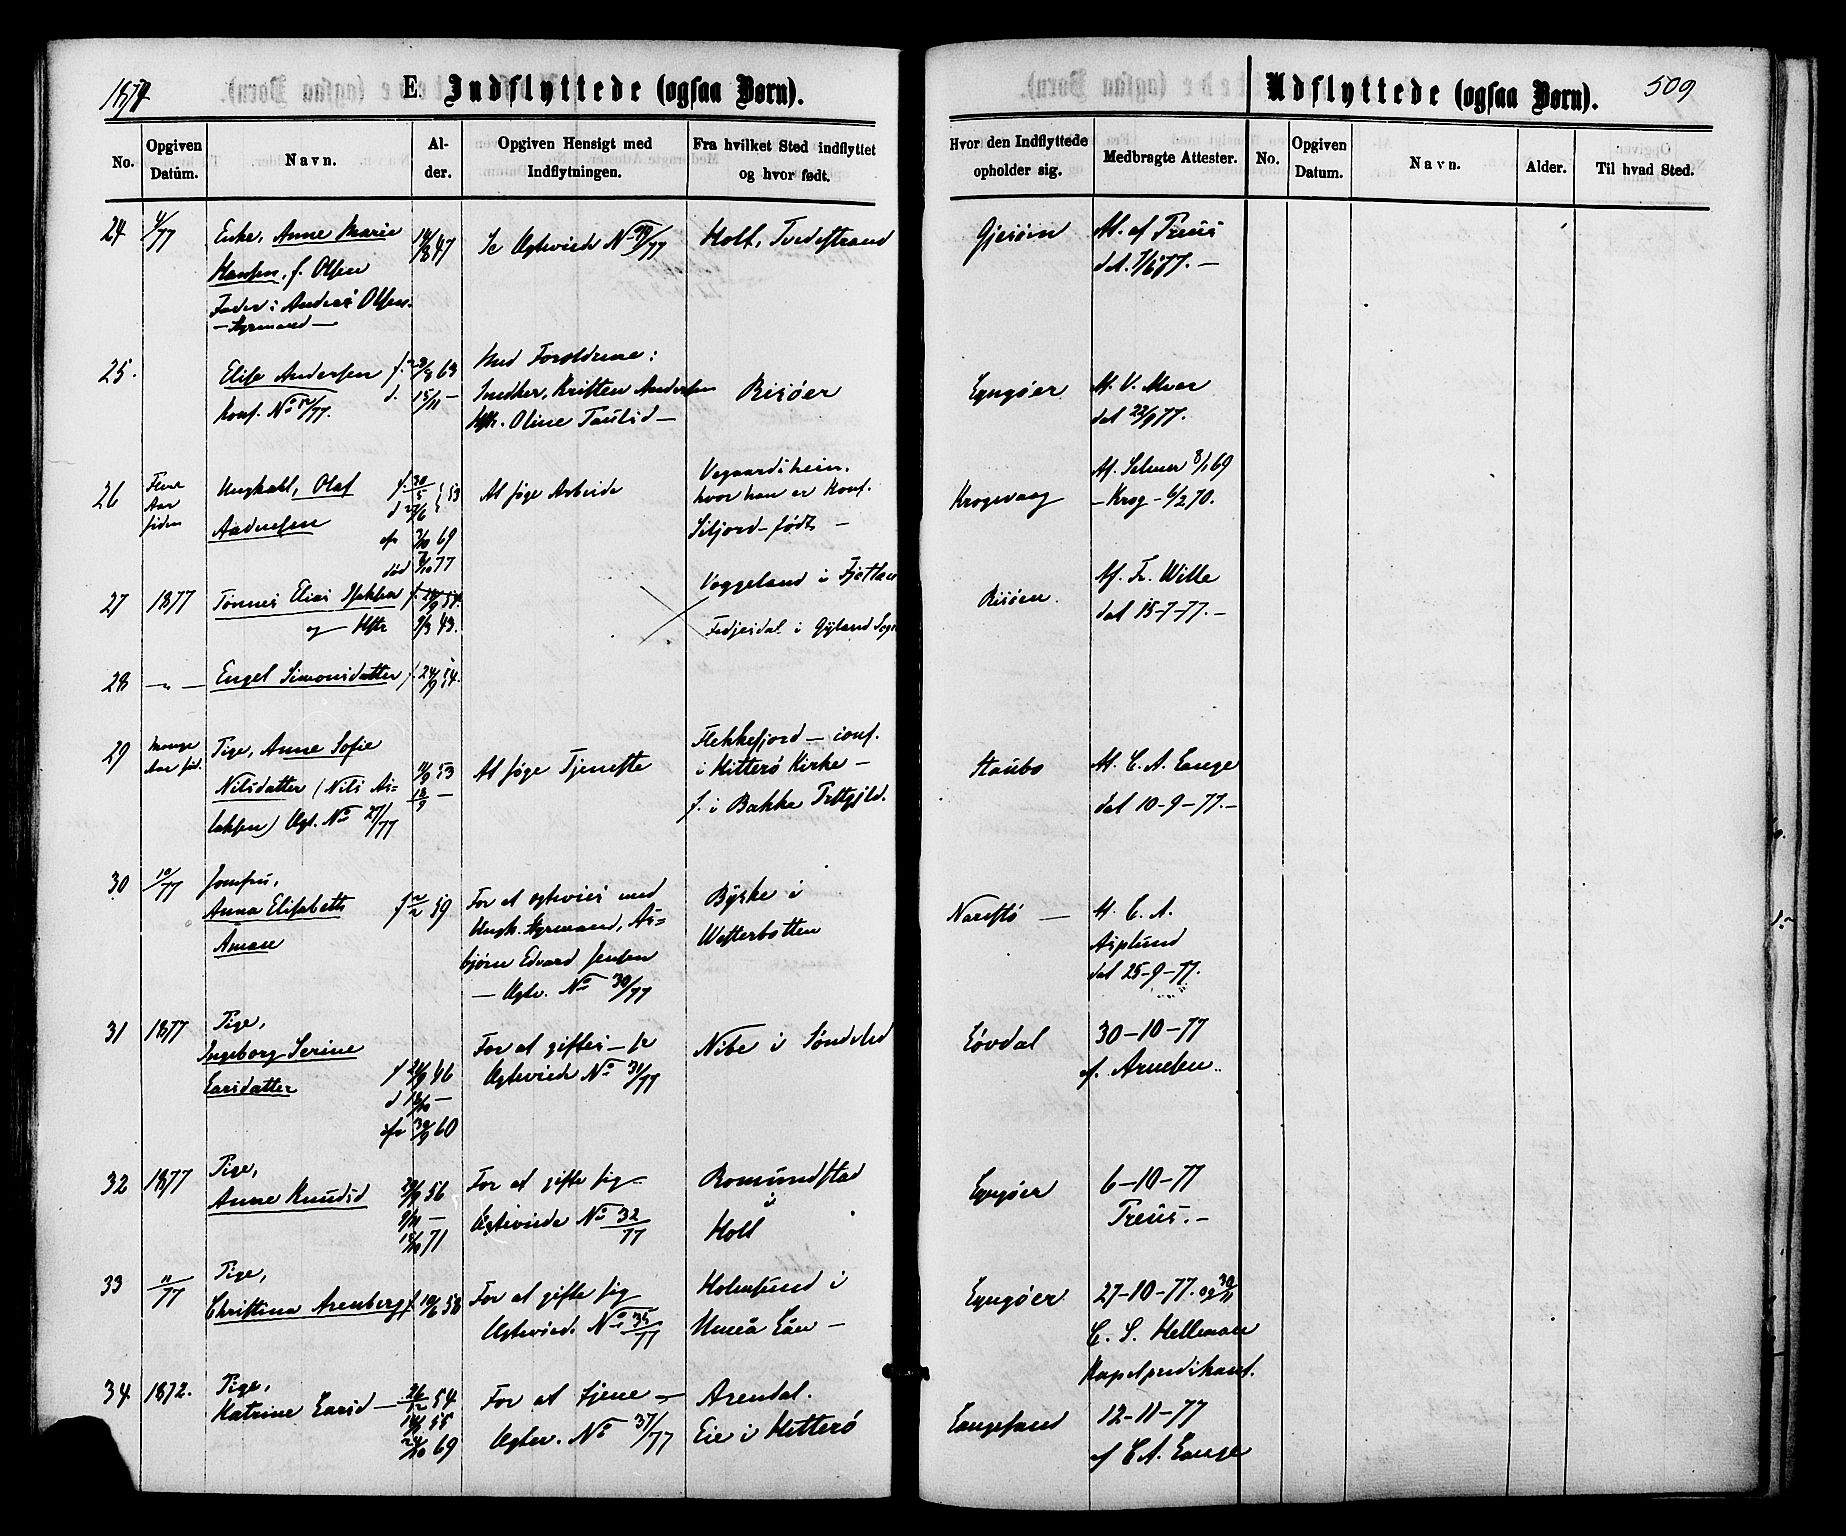 1877
E. Indflyttede (ogsaa Børn).
Udflyttede (ogsaa Børn).
509
No.
Opgiven Datum.
Navn.
Alder.
Opgiven Hensigt med Indflytningen.
Fra hvilket Sted indflyttet og hvor født.
Hvor den Indflyttede opholder sig.
Medbragte Attester.
No.
Opgiven Datum.
Navn.
Alder.
Til hvad Sted.
24
Enke, Anne Marie
Hansen, f. Olsen
Fader: Anders Olsen
Se Egteviede No
Holt, Tvedestrand
At. af Treus
dat. 7/6 77. —
25.
Elise Andersen
Konf. No 12/77.
63
15/11 —
Med Forældrene:
Snedker, Kristen Andersen
Hstr. Oline Taulid —
Risøer
Lyngøer
dat 22/9 77.
26
Aar
siden
Ungkarl, Olaf
Andersen
f. 30/5 53
69
død 77
At søge Arbeide
Vegaardsheien,
hvor han er Konf.
Siljord — født —
Krogsvaag
Af. Selmer 8/1 69
— Krog — 6/2 70.
27
1877
Tønnes Elias
og Hstr
43.
Voggeland i Fjotland
i Gyland Sogn
Risøen
Af. Fr. Wille
dat 15-7-77. —
28
— " —
Engel Simonsdatter
f. 24/9 54.
29
Mange
Aar sid.
Pige, Anne Sofie
Nilsdatter (Nils As=
laksen) Egt. No 27/77
11/9 53
18/9 —
At søge Tjeneste
Flekkefjord — conf.
i Hitterø Kirke —
f. i Bakke Prstgjld.
Staubø
At. C. A. Lange
dat 10-9-77. —
30
10/77
Jomfru,
Anna Elisabeth
Åman
f 2/2 59
For at egtevies med
Ungk. Styrmand, As=
bjørn Edvard Jensen
— Egtv. No 30/77
Byske i
Westerbotten
Narestø —
At. C. A.
Asplund
dat 25-9-77.
31
1877
Pige,
Ingeborg Serine
Larsdatter
46
60
For at giftes — se
Egteviede No 31/77
Nibe i Søndeled
Løvdal
30-10-77
af. Arnesen
32
1877
Pige,
Anne Knudsd
56
71
For at gifte sig —
Egteviede No 32/77
Romundstad
i
Holt
Lyngøer
6-10-77
Treus. —
33
11/77
Pige,
Christina Arenberg
58
For at gifte sig
Egteviede. No 35/77
Holmsund i
Umeå Län —
Lyngøer
27-10-77. og 30/11
C. S. Hellman
Kapelpredikant.
34
1872.
Pige,
Katrine Larsd —
26/12 54
55
69
For at tjene —
Egtev. No 37/77
Arendal.
Eie i Hitterø
Langesand
12-11-77
af C. A. Lange